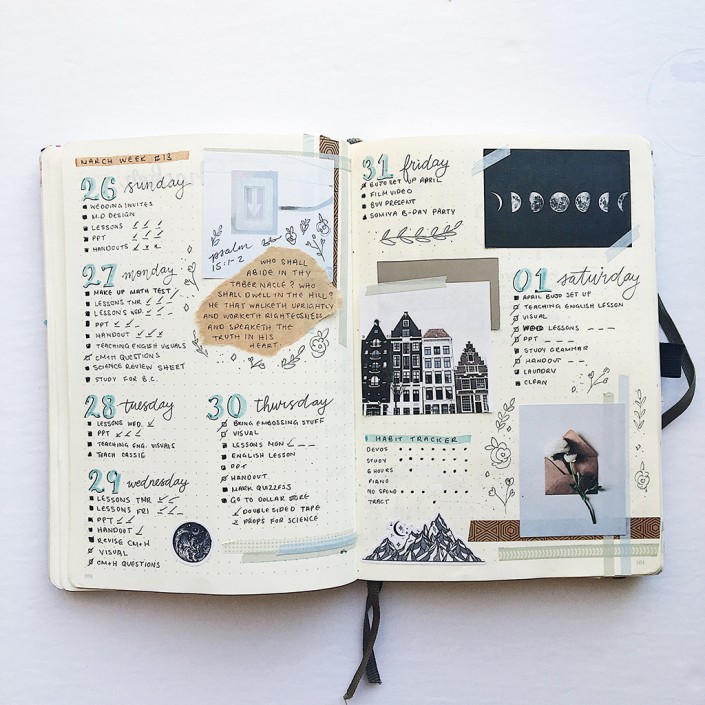 MARCH WEEK #13
26 sunday
WEDDING INVITES
M.D DESIGN
LESSONS
PPT
HANDOUTS
psalm
15:1-2
WHO SHALL
ABIDE IN THY
TABERNACLE? WHO
SHALL DWELL IN THE HILL?
HE THAT WALKETH UPRIGHTLY
AND WORKETH RIGHTEOUSNESS
AND SPEAKETH THE
TRUTH IN HIS
HEART.
27 monday
MAKE UP MATH TEST
LESSONS TNR
LESSONS WED.
PPT
HANDOUT
TEACHING ENGLISH VISUALS
CM+H QUESTIONS
SCIENCE REVIEW SHEET
STUDY FOR B.C.
28 tuesday
LESSONS WED.
PPT
TEACHING ENG. VISUALS
TEACH CASSIE
29 wednesday
LESSONS TNR
LESSONS FRI
PPT
HANDOUT
REVISE CM+H
VISUAL
CM+H QUESTIONS
30 thursday
BRING EMBOSSING STUFF
VISUAL
LESSONS MON
ENGLISH LESSON
PPT
HANDOUT
MARK QUIZZESS
GO TO DOLLAR STORE
DOUBLE SIDED TAPE
PROPS FOR SCIENCE
31 friday
BUJO SET UP APRIL
FILM VIDEO
BUY PRESENT
SOMIYA B-DAY PARTY
HABIT TRACKER
DEVOS
STUDY
6 HOURS
PIANO
NO SPEND
TRACT
01 saturday
APRIL BUJO SET UP
TEACHING ENGLISH LESSON
VISUAL
LESSONS
PPT
STUDY GRAMMAR
HANDOUT
LAUNDRY
CLEAN